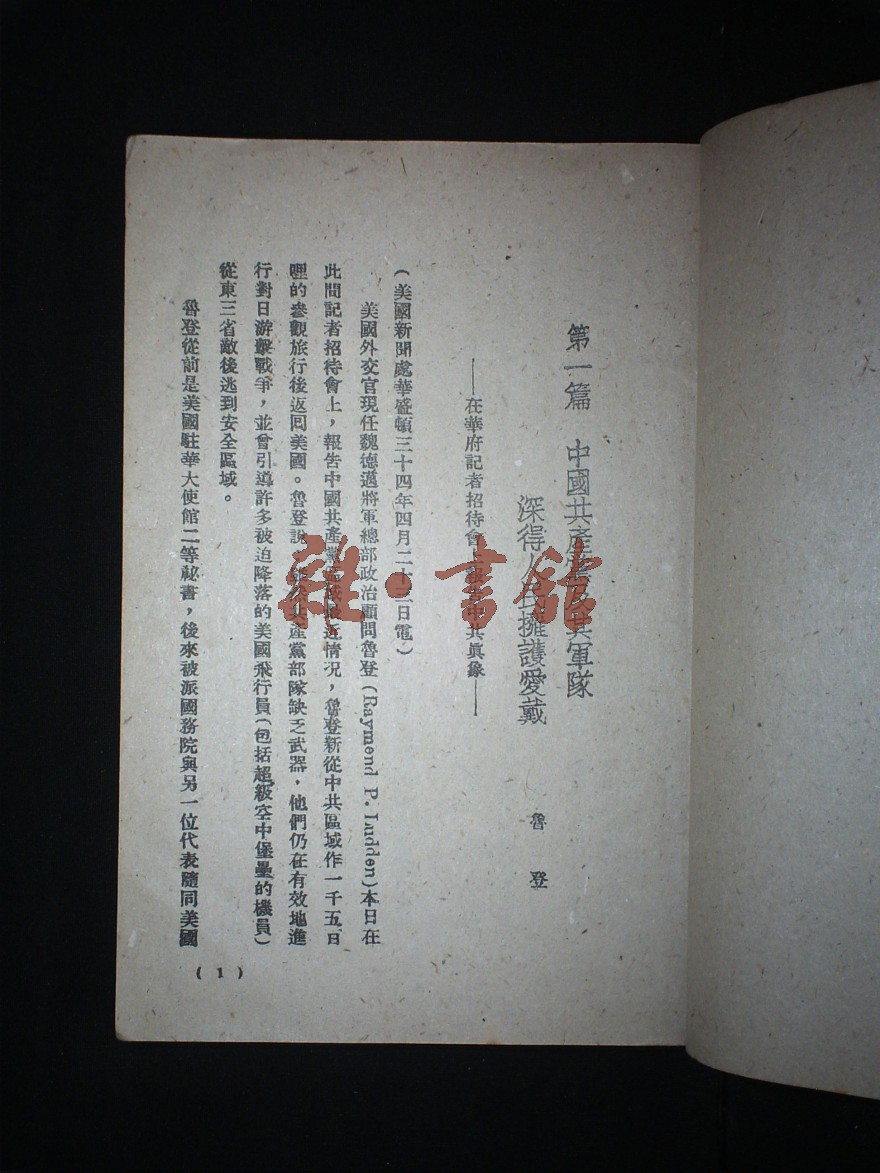 第一篇　中國共產黨及其軍隊
深得人民擁護愛戴
魯登
——在華府記者招待會上報告中共眞象——
(美國新聞處華盛頓三十四年四月二十三日電)
美國外交官現任魏德邁將軍總部政治顧問魯登(Raymend P. Ludden)本日在
此間記者招待會上，報告中國共產黨區域最近情况，魯登新從中共區域作一千五百
哩的參觀旅行後返囘美國。魯登說，共產黨部隊缺乏武器，他們仍在有效地進
行對日游擊戰爭，並曾引導許多被迫降落的美國飛行員(包括超級空中堡壘的機員)
從東三省敵後逃到安全區域。
魯登從前是美國駐華大使館二等祕書，後來被派國務院與另一位代表隨同美國
(1)
雜·書館